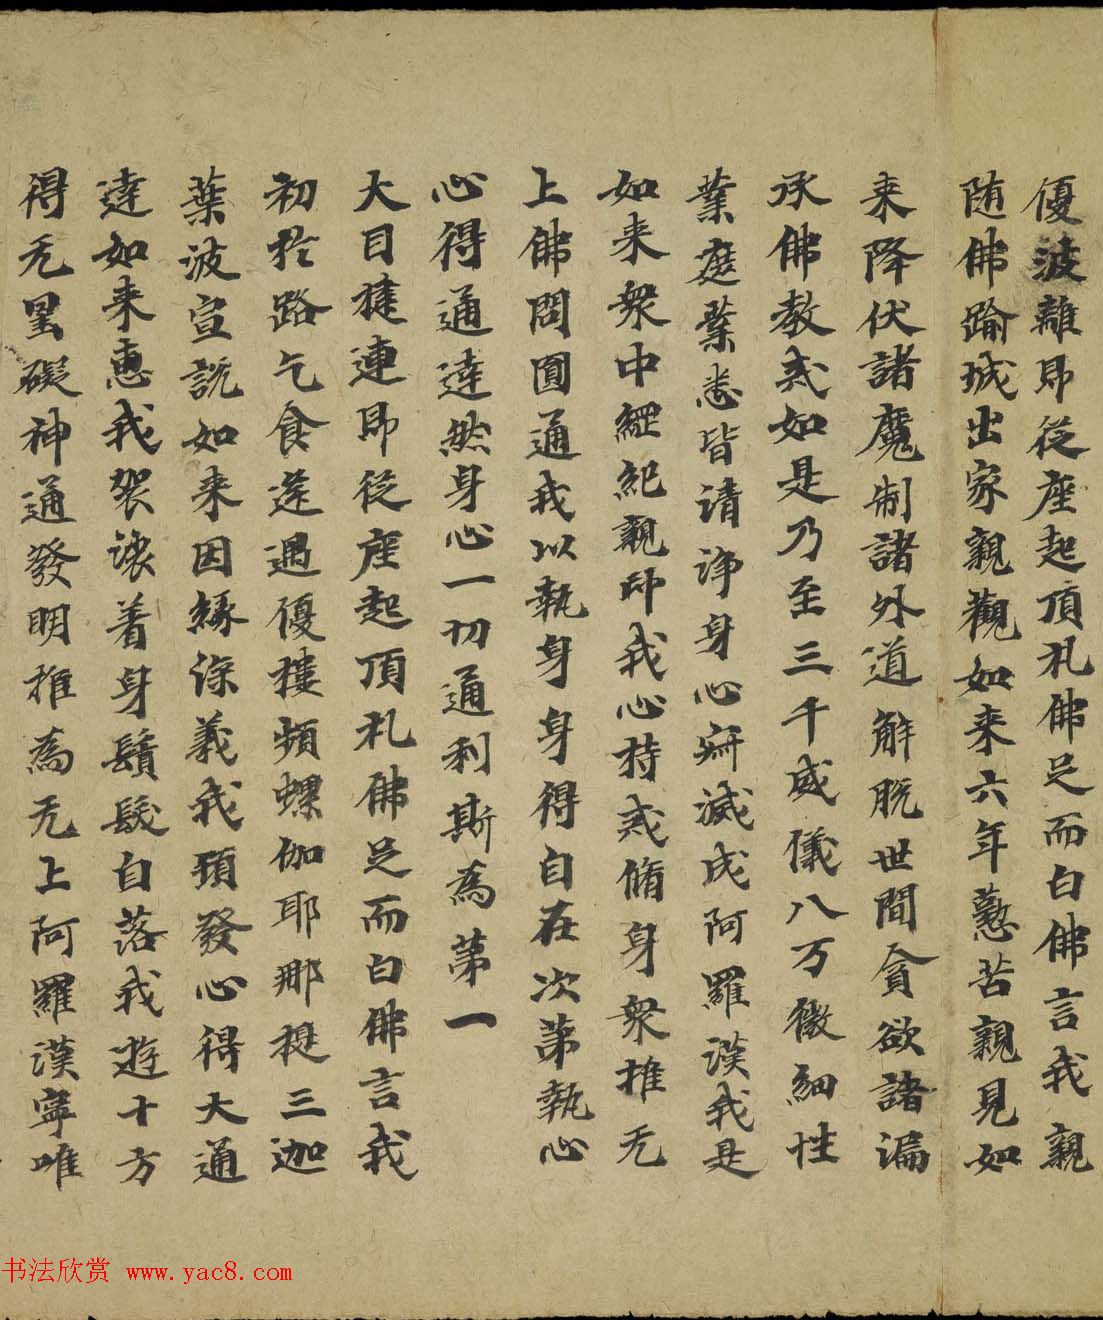 優波離即從座起頂礼佛足而白佛言我親
随佛踰城出家親觀如来六年懃苦親見如
来降伏諸魔制諸外道解脱世間貪欲諸漏
承佛教戒如是乃至三千威儀八万微細性
業遮業悉皆清浄身心寂滅成阿羅漢我是
如来衆中綱紀親印我心持戒脩身衆推无
上佛問圓通我以執身身得自在次第執心
心得通達然身心一切通利斯為第一
大目揵連即從座起頂礼佛足而白佛言我
初於路乞食逢遇優樓頻螺伽耶那提三迦
葉波宣説如来因縁深義我頓發心得大通
達如来惠我袈裟着身鬚髮自落我遊十方
得无罣礙神通發明推為无上阿羅漢寧唯
书法欣赏 www.yac8.com